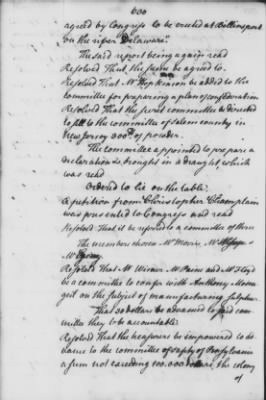 agreed by Congress to be erected at Billinsport
on the river Delaware"
The said report being again read
Resolved That the same be agreed to.
Resolved That Mr Hopkinson be added to the
committee for preparing a plan of confederation
Resolved That the secret committee be directed
to sell to the committee of Salem county in
New Jersey 300 of powder.
The committee appointed to prepare a
declaration &c brought in a draught which
was read
Ordered to lie on the table.
A petition from Christopher Champlain
was presented to Congress and read
Resolved That it be referred to a committee of three
The members chosen Mr Morris,
Mr
Resolved That Mr Wisner, Mr Paine and Mr Floyd
be a committee to confer with Anthony
on the subject of manufacturing sulphur.
That 50 dollars be advanced to said com
mittee they to be accountable
Resolved That the treasurers be impowered to ad
vance to the committee of safety of Pensylvania
a sum not exceeding 100.000 dollars, the colony
of